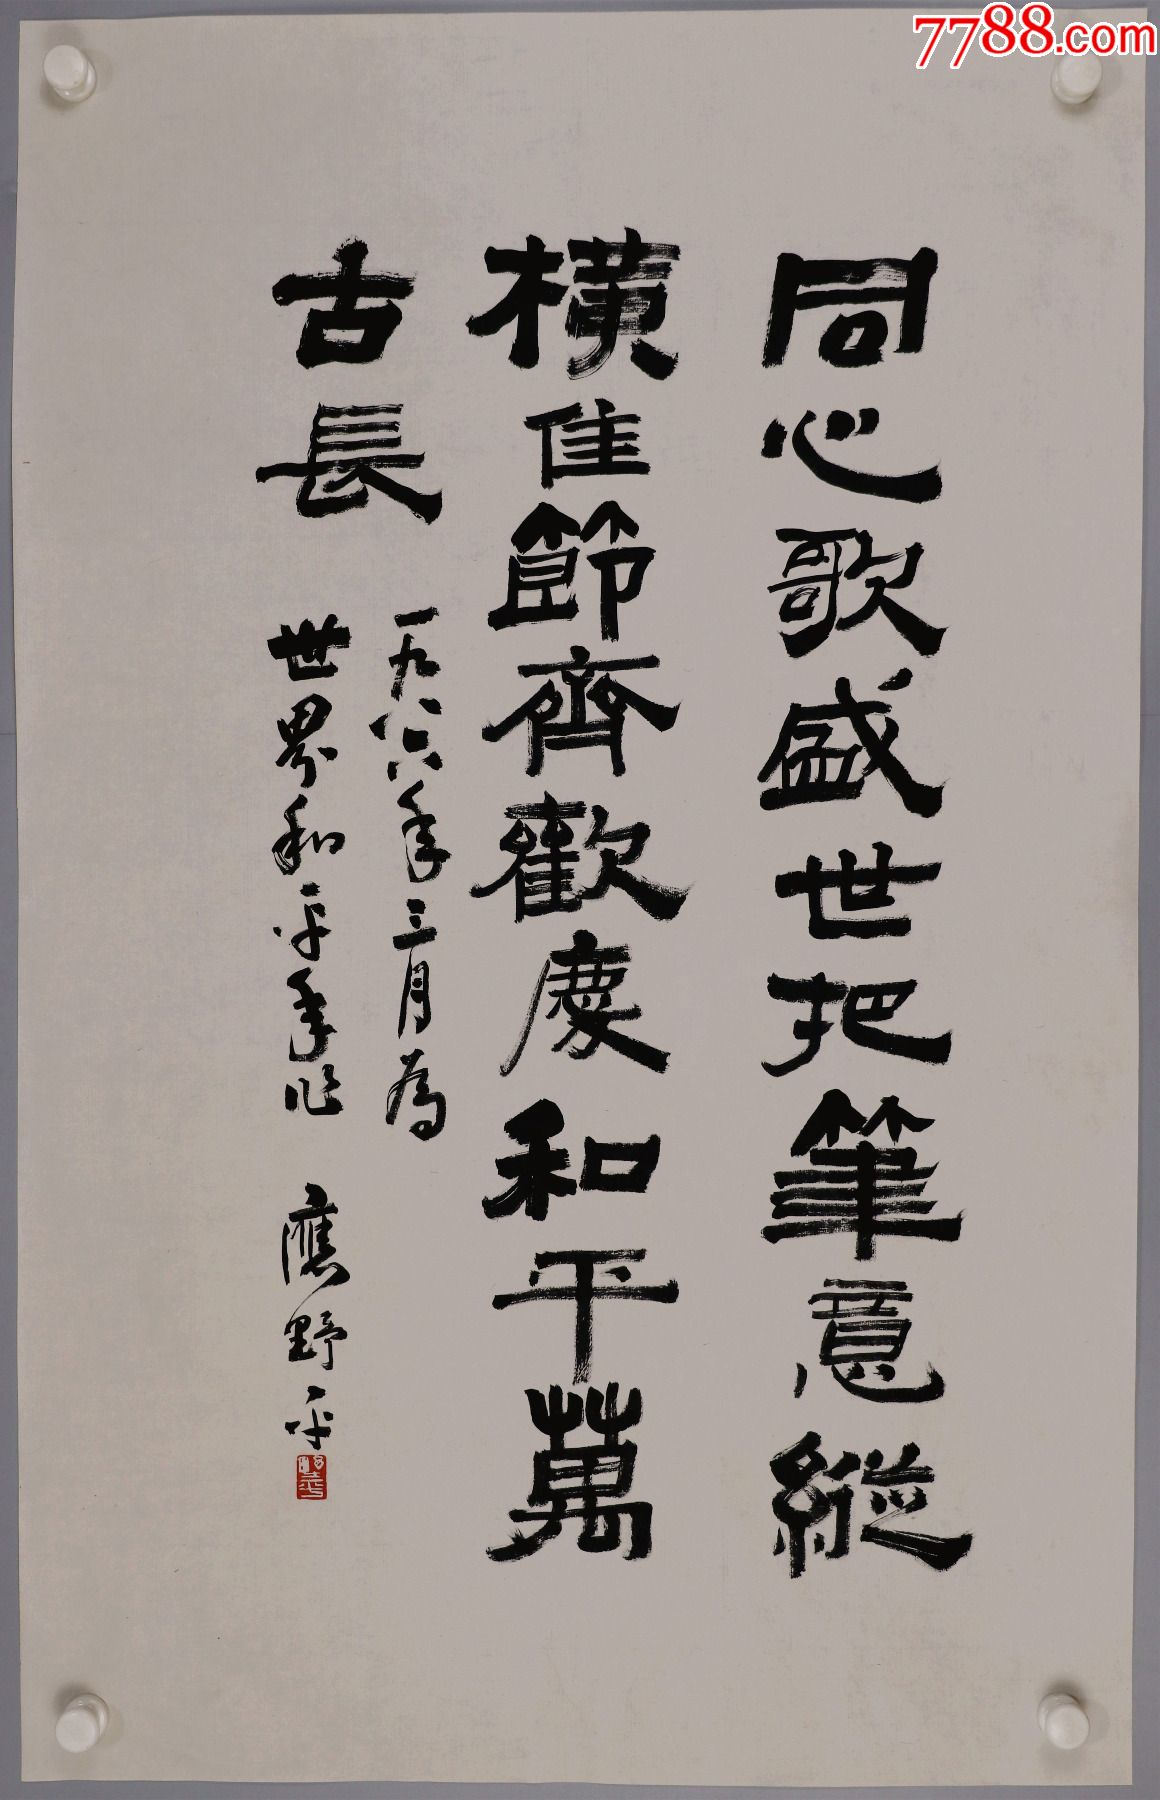 7788.com
同心歌盛世把筆意縱
橫佳節齊歡慶和平萬
古長
一九八六年三月為
世界和平年作 應野平